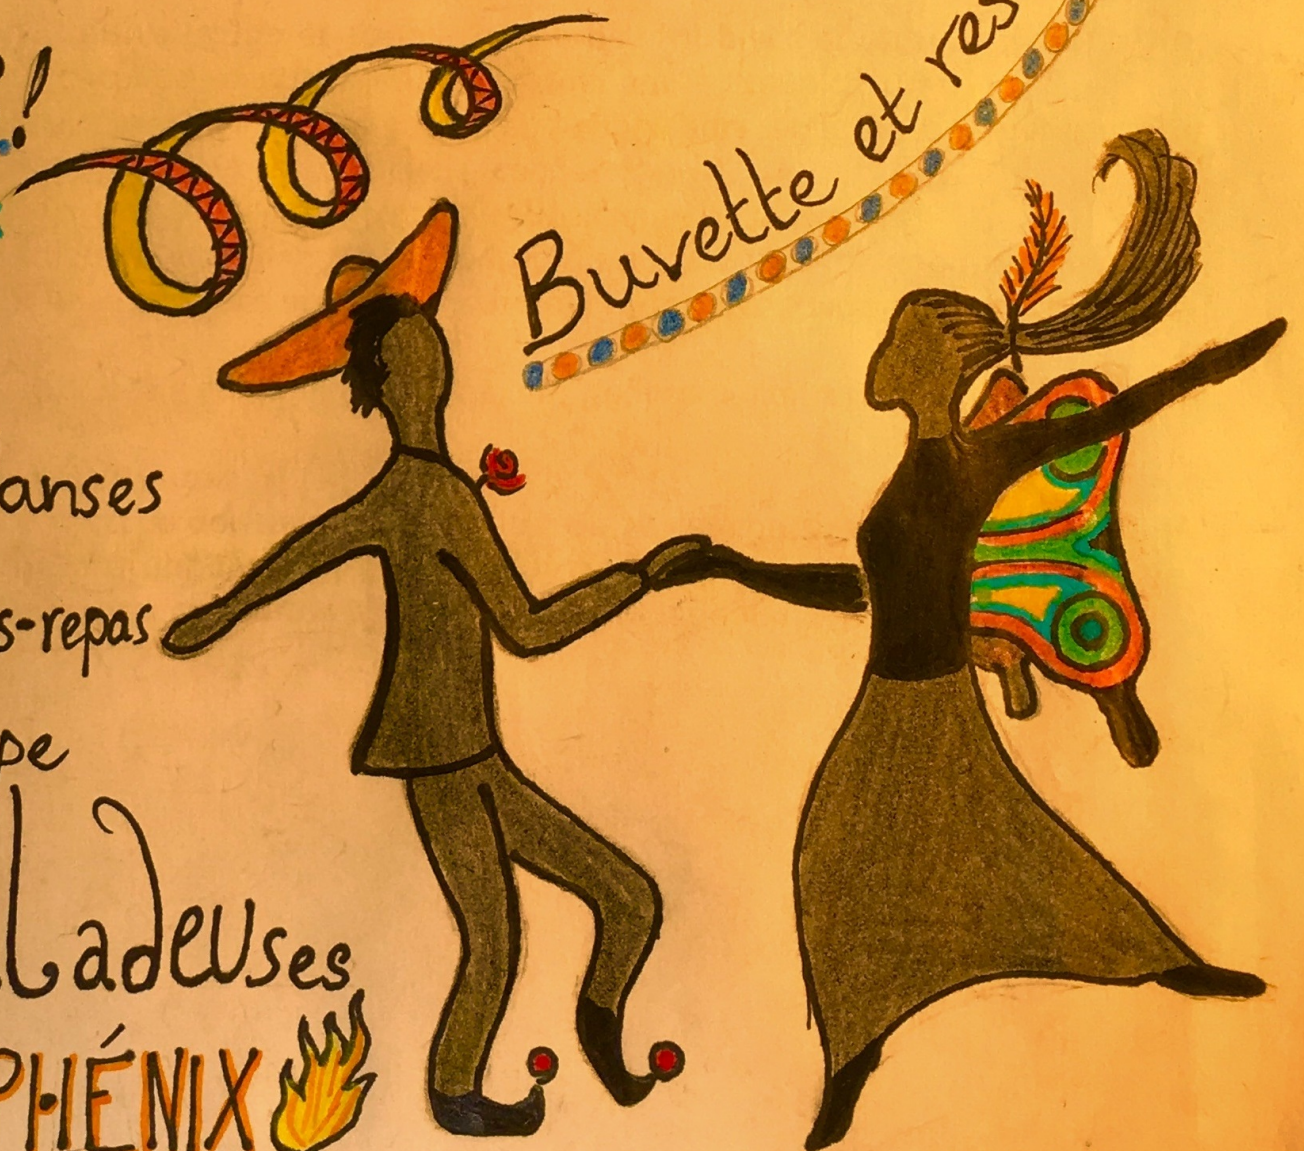 !
Buvette et res
anses
s-repas
pe
Ladeuses
PHÉNIX